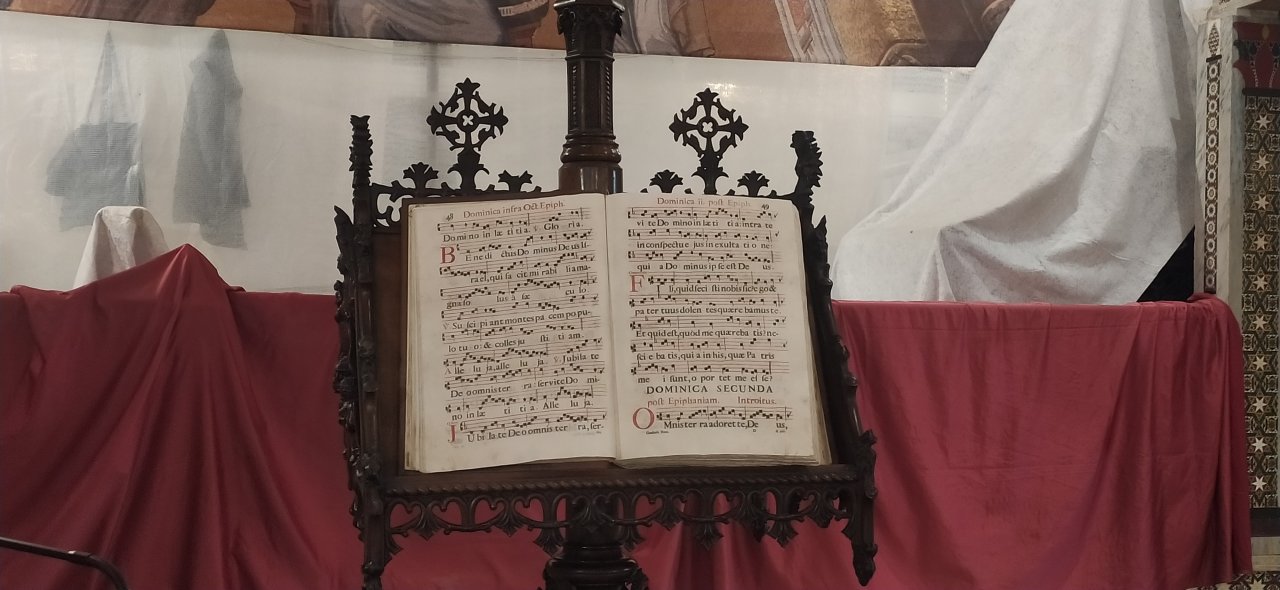 48 Dominica infra Oct. Epiph.
Domino in læ ti tia. ℣. Glo ria.
B E ne di ctus Do minus De us Is-
ra el, qui fa cit mi rabi li a ma-
gna so lus à sæ cu lo.
℣. Su sci pi ant montes pa cem po pu-
lo tu o: & colles ju sti ti am.
Alle lu ja, alle lu ja. ℣. Jubila te
De o omnis ter ra: servite Do mi-
no in læ ti ti a. Alle lu ja.
J U bi la te De o omnis ter ra, ser-
Dominica ii. post Epiph. 49
vi te Do mino in læ ti tia: intra te
in conspectu e jus in exulta ti o ne:
qui a Do minus ip se est De us.
F I li, quid feci sti nobis sic? e go &
pa ter tuus dolen tes quære bamus te.
Et quid est, quòd me quæreba tis? ne-
sci e ba tis, qui a in his, quæ Pa tris
me i sunt, o por tet me es se?
DOMINICA SECUNDA
post Epiphaniam. Introitus.
O Mnis ter ra adoret te, De us,